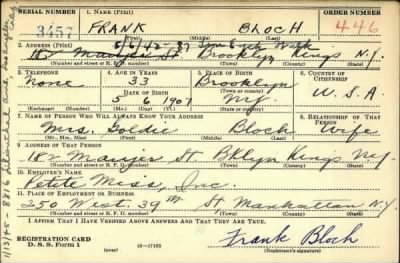 SERIAL NUMBER 1. NAME (Print) ORDER NUMBER
3457 FRANK BLOCH 446
2. ADDRESS (Print)
182 Maujer St. Brooklyn Kings N.Y.
(Number and street or R. F. D. number) (Town) (County) (State)
3. TELEPHONE 4. AGE IN YEARS 5. PLACE OF BIRTH 6. COUNTRY OF CITIZENSHIP
None 33 Brooklyn
DATE OF BIRTH
5 6 1907 N.Y. U.S.A
(Exchange) (Number) (Mo.) (Day) (Yr.) (State or country)
7. NAME OF PERSON WHO WILL ALWAYS KNOW YOUR ADDRESS 8. RELATIONSHIP OF THAT PERSON
Mrs. Goldie Bloch Wife
(Mr., Mrs., Miss) (First) (Middle) (Last)
9. ADDRESS OF THAT PERSON
182 Maujer St. Bklyn Kings N.Y
(Number and street or R. F. D. number) (Town) (County) (State)
10. EMPLOYER'S NAME
Petite Miss, Inc.
11. PLACE OF EMPLOYMENT OR BUSINESS
250 West 39th St. Manhattan N.Y
(Number and street or R. F. D. number) (Town) (County) (State)
I AFFIRM THAT I HAVE VERIFIED ABOVE ANSWERS AND THAT THEY ARE TRUE.
REGISTRATION CARD
D. S. S. Form 1 16-17105 Frank Bloch
(Registrant's signature)